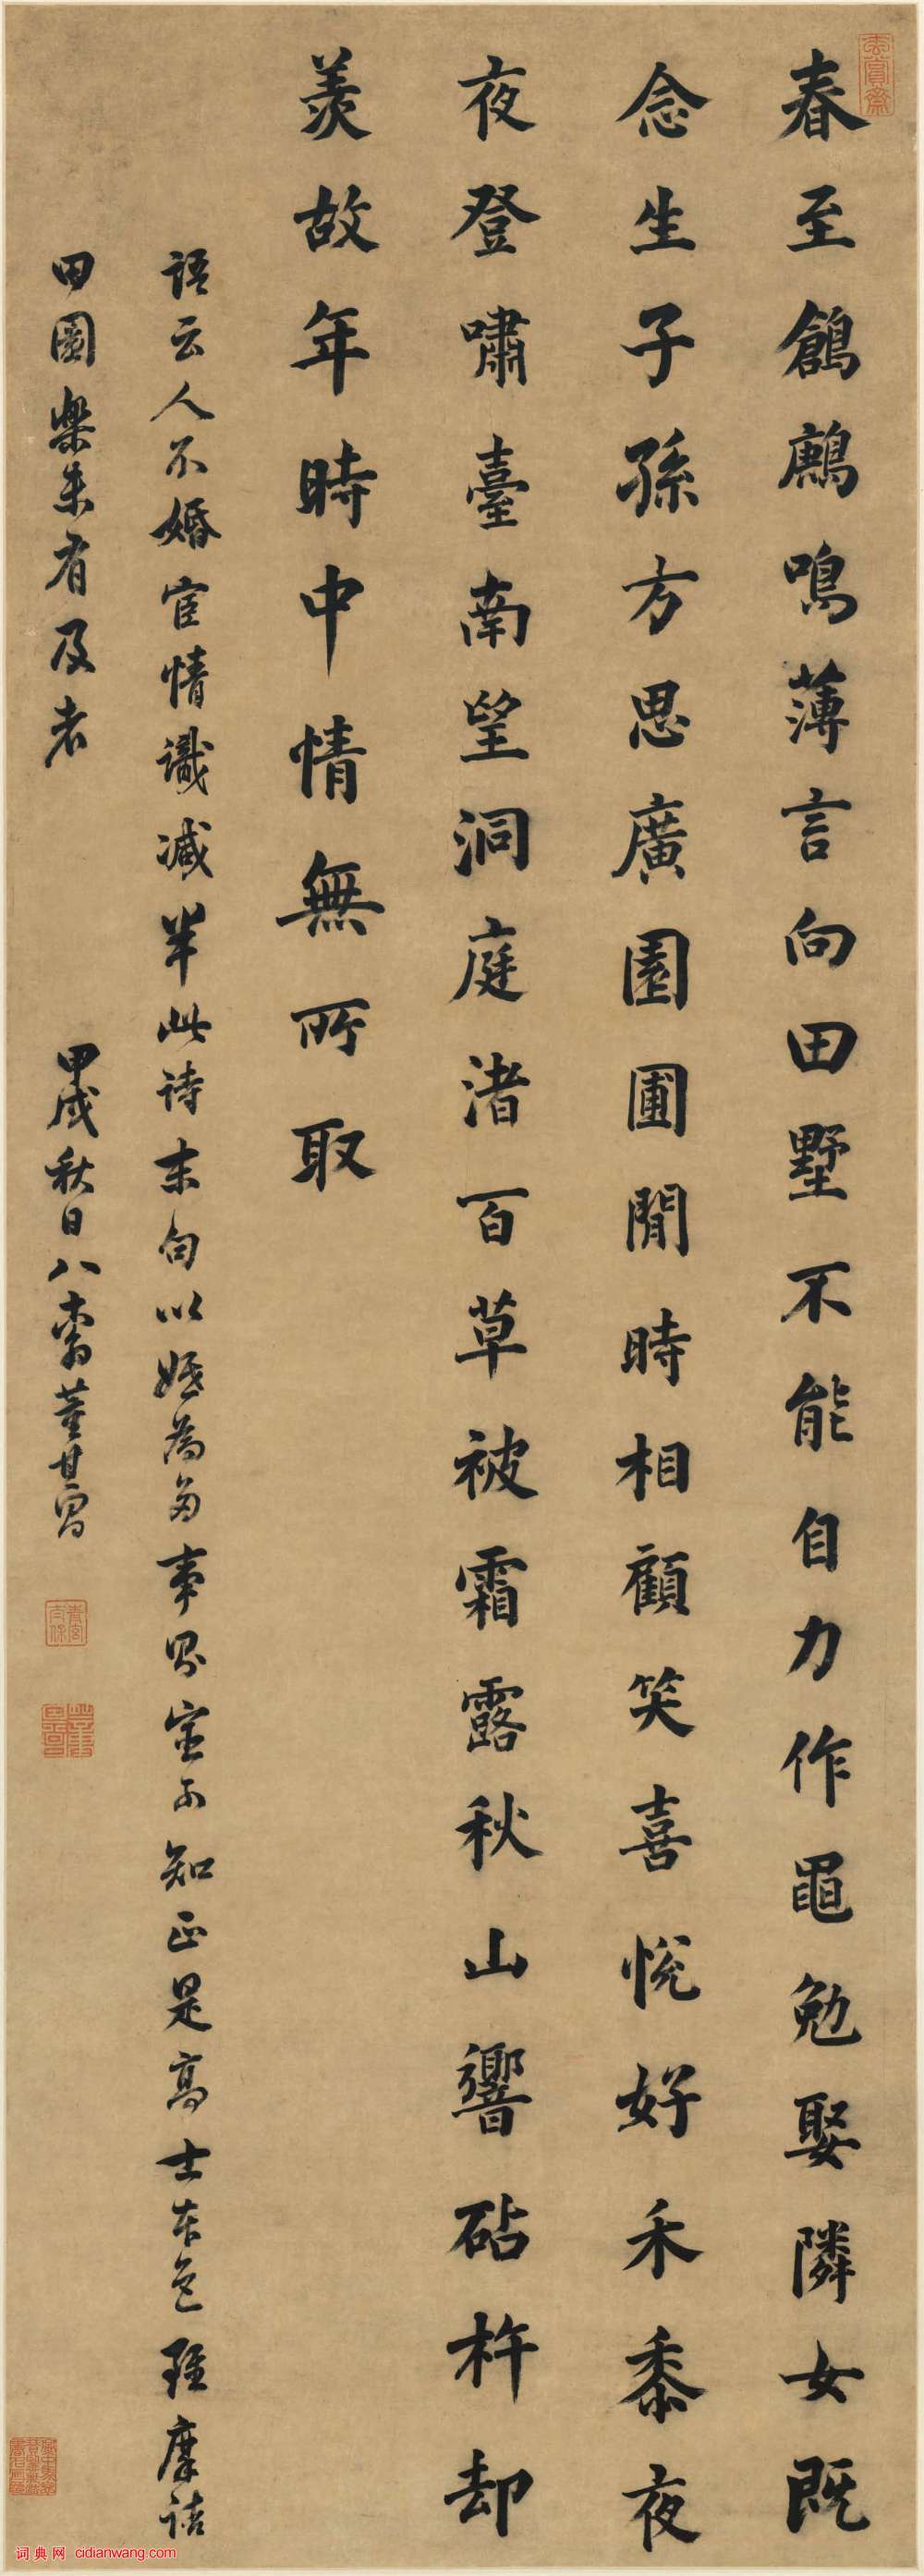 春至鶬鶊鳴薄言向田墅不能自力作黽勉娶隣女既
念生子孫方思廣園圃閒時相顧笑喜悅好禾黍夜
夜登嘯臺南望洞庭渚百草被霜露秋山響砧杵却
羨故年時中情無所取
語云人不婚宦情識減半此诗末句以婚為多事㫮宦可知正是高士本色雖摩詰
田園樂未有及者
甲戌秋日八十翁董其昌
玄賞齋
青宮太保
董其昌
词典网 cidianwang.com